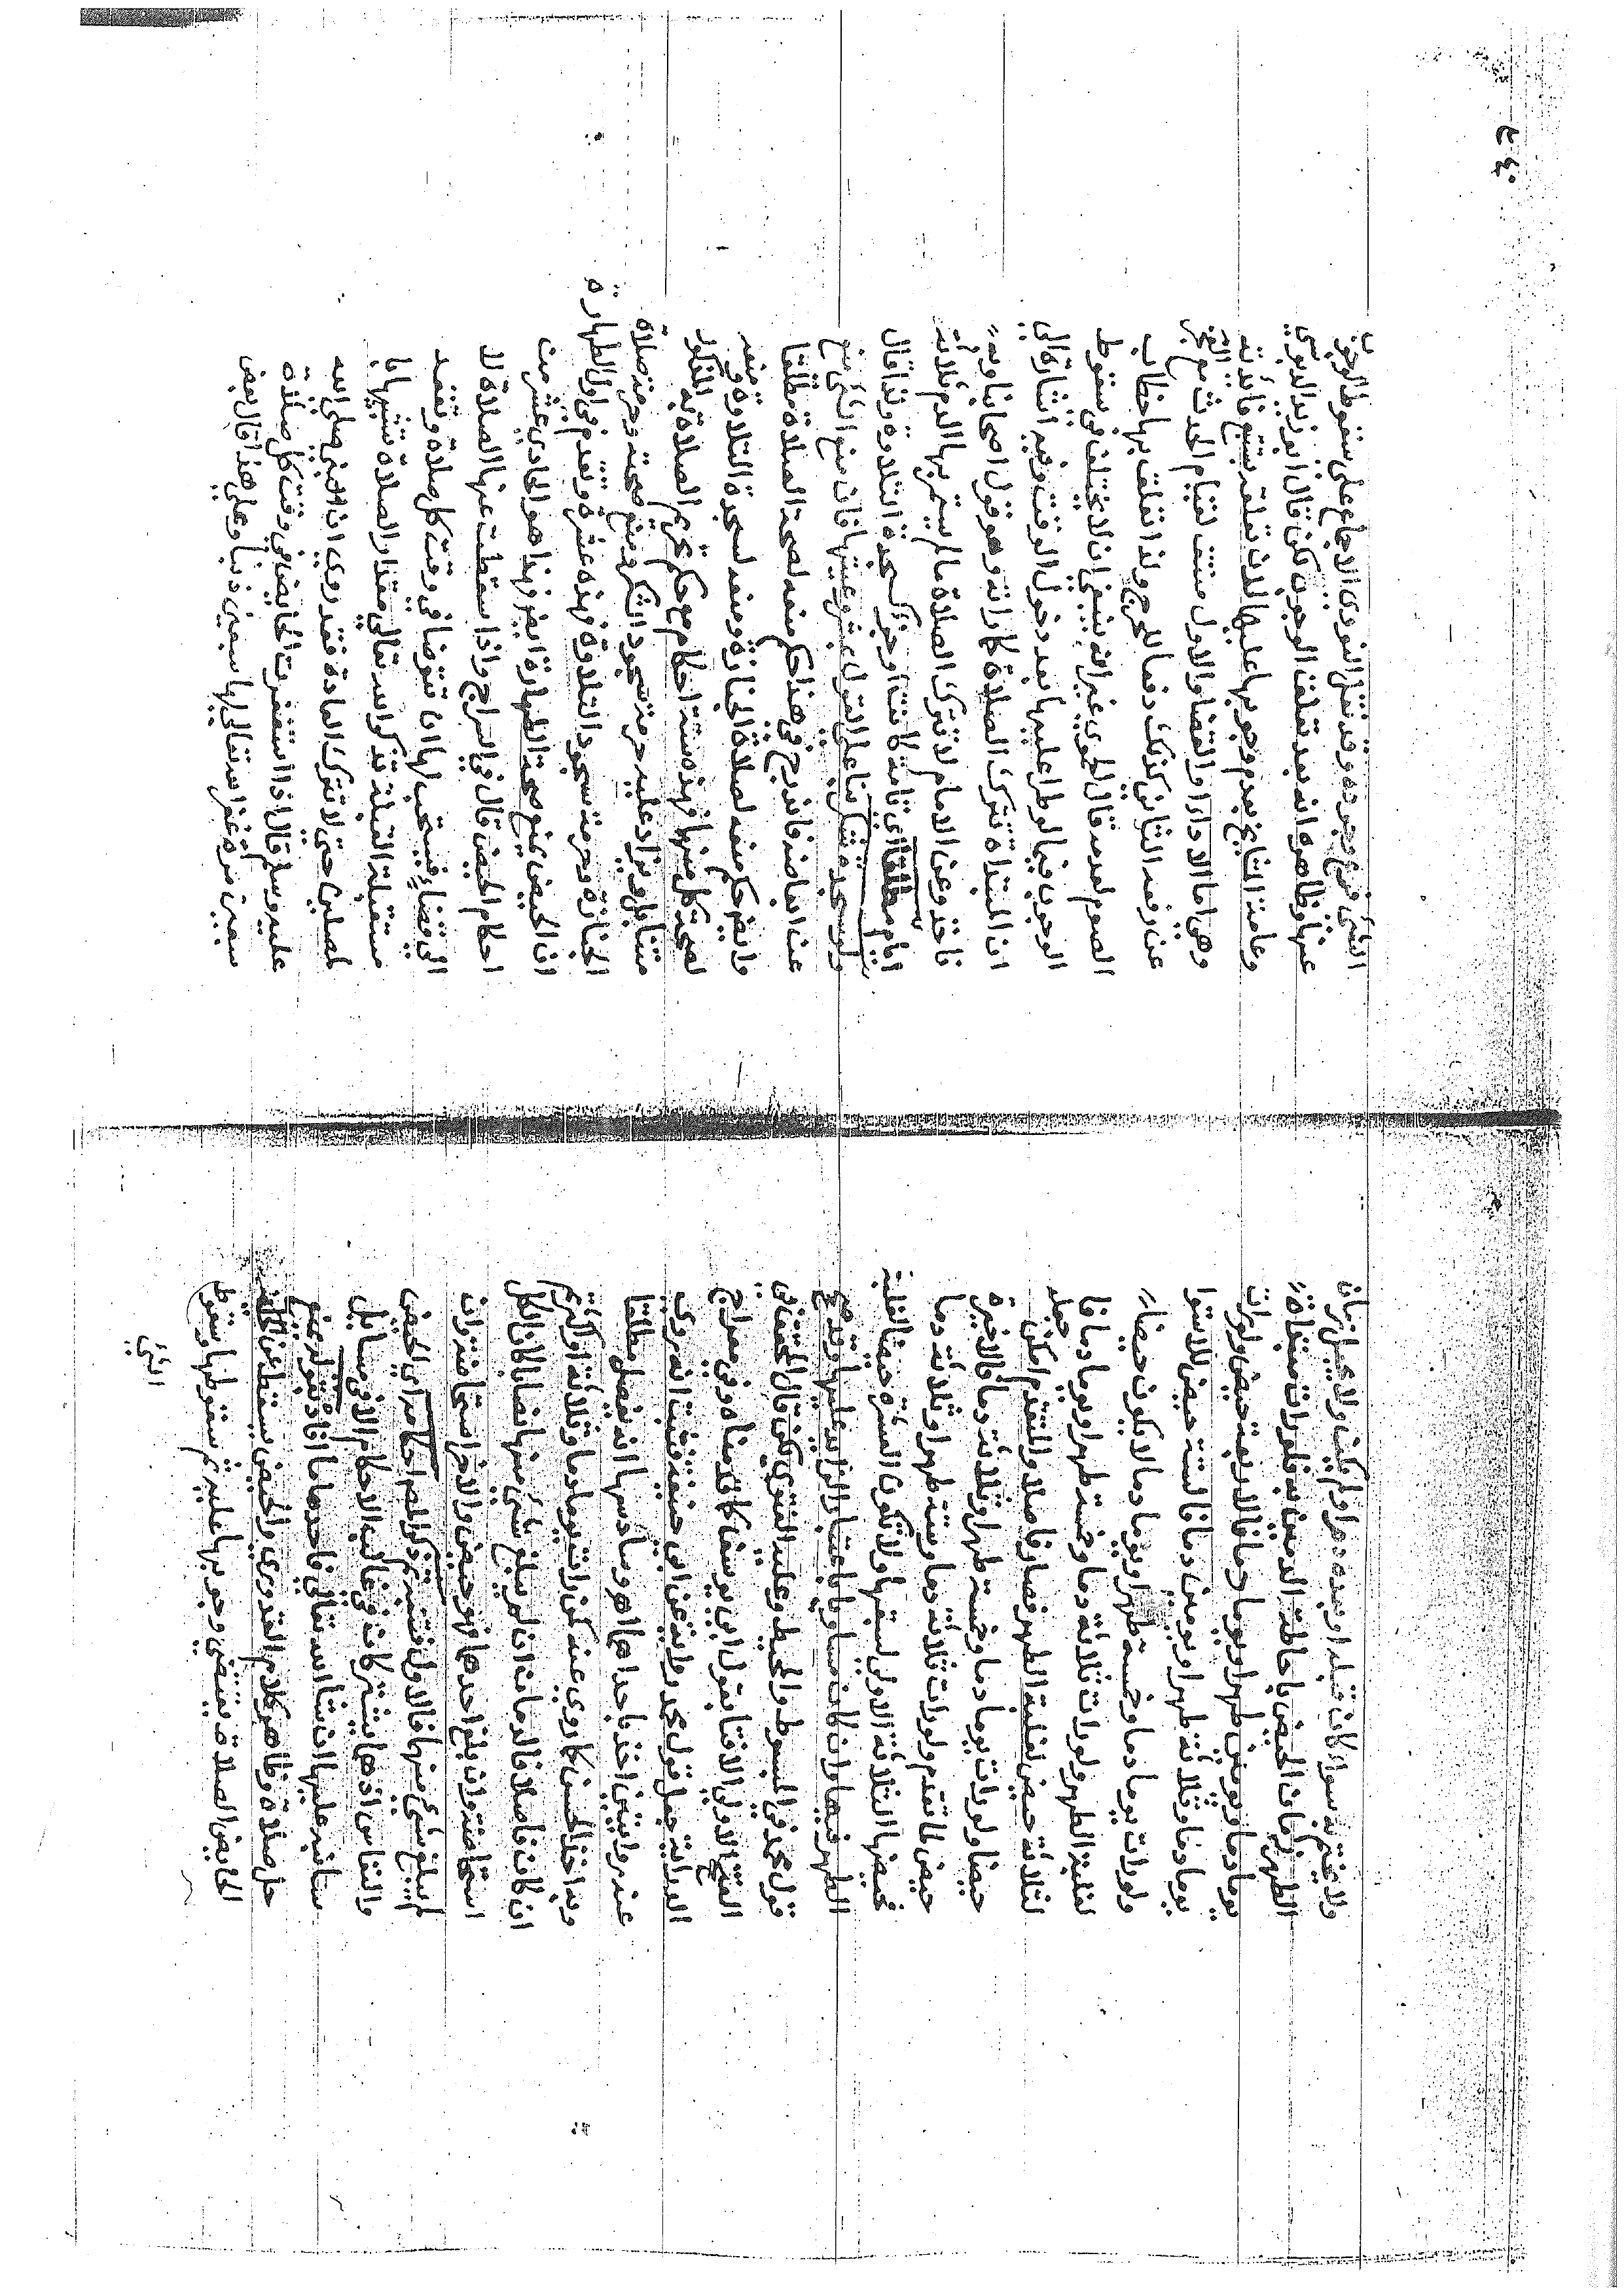 ولا يختم به سواء كان قبله او بعده دم او لم يكن ولا يجعل زمان
الطهر زمان الحيض باحاطة الدمين به فلو رات مبتداة
يوما دما ويومين طهرا ويوما دما فالاربعة حيض ولو رات
يوما دما وثلاثة طهرا ويومين دما فالستة حيض للاستوا
ولو رات يوما دما وخمسة طهرا ويوما دما لا يكون حيضا
لغلبة الطهر ولو رات ثلاثة دما وخمسة طهرا ويوما دما فا
لثلاثة حيض لغلبة الطهر فصار فاصلا والمتقدم امكن جعله
حيضا ولو رات يوما دما وخمسة طهرا وثلاثة دما فالاخيرة
حيض لما تقدم ولو رات ثلاثة دما وستة طهرا وثلاثة دما
فحيضها الثلاثة الاولى لسبقها ولا تكون العشرة حيضا لغلبة
الطهر فيها وان كان مساويا باعتبار الزايد عليها وقد صحح
قول محمد في المبسوط والمحيط وعليه الفتوى لكن قال المحقق في
الفتح الاولى الافتا بقول ابي يوسف كما قدمناه وفي معراج
الدراية جعل قول محمد رواية عن ابي حنيفة فثبت انه روى
عنه روايتين اخذ باحداهما وسادسها انه يفصل مطلقا
وبه اخذ الحسن كما روي عنه كمن رات يوما دما وثلاثة او اكثر
ان كان فاصلا فالدمان ان لم يبلغ شئ منهما نصابا كان الكل
استحاضة وان بلغ احدهما فهو حيض والاخر استحاضة وان
لم يبلغ شئ منهما فالاول ثم ذكر المص احكامه اي الحيض
والنفاس اذ هما يشتركان في غالب الاحكام الا في مسايل
سننبه عليها ان شا الله تعالى فاحدها ما افاده بقوله يمنع
حل صلاة وظاهر كلام القدوري والحيض يسقط عن
الحايض الصلاة يقتضي وجوبها عليه ثم سقوطها وسقوط
الشئ
الشئ فرع وجوده وقد نقل النووي الاجماع على سقوط الوجوب
عنها وظاهره انه بعد تعلق الوجوب لكن قال ابو زيد الدبوسي
وعامة المشايخ بعدم وجوبها عليها لان تعلقه يستتبع فائدته
وهي اما الادا او القضا والاول منتف لقيام الحدث مع العجز
عن رفعه الثاني كذلك دفعا للحرج ولذا تعلق بها خطاب
الصوم لعدمه قال الحموي غير انه ينبغي ان لا يختلف في سقوط
الوجوب فيما لو طرا عليها بعد دخول الوقت وفيه اشارة الى
ان المبتداة تترك الصلاة كما راته وهو قول اصحابنا وبه
ناخذ وعن الامام لا تترك الصلاة ما لم يستمر بها الدم ثلاثة
ايام مطلقا اي تامة كانت او جز كسجدة التلاوة ولذا قال
ولو سجدة شكر بنا على القول بمشروعيتها فان منع الشئ منع
عن ابعاضه فاندرج في هذا حكم منعه لصحة الصلاة مطلقا
وايضا حكم منعه لصلاة الجنازة ومنعه لسجدة التلاوة ومنعه
لصحة كل منها فهذه ستة احكام مع حكم تحريم الصلاة به المذكور
متنا بل ويزاد عليه حرمة سجود الشكر ومنع صحته وحرمة صلاة
الجنازة وحرمة سجود التلاوة وبهذه عشرة وتقدم في اول الطهارة
ان الحيض يمنع صحة الطهارة ايضا وهذا هو الحادي عشر من
احكام الحيض قال في السراج واذا سقطت عنها الصلاة لا
الى قضاء فيستحب لها ان تتوضا في وقت كل صلاة وتقعد
مستقبلة القبلة تذكر الله تعالى مقدار الصلاة تشبيها با
لمصلين حتى لا تترك العادة فقد روي ان النبي صلى الله
عليه وسلم قال اذا استغفرت الحايض في وقت كل صلاة
سبعين مرة غفر الله تعالى لها سبعين ذنبا وعلى هذا قال بعض